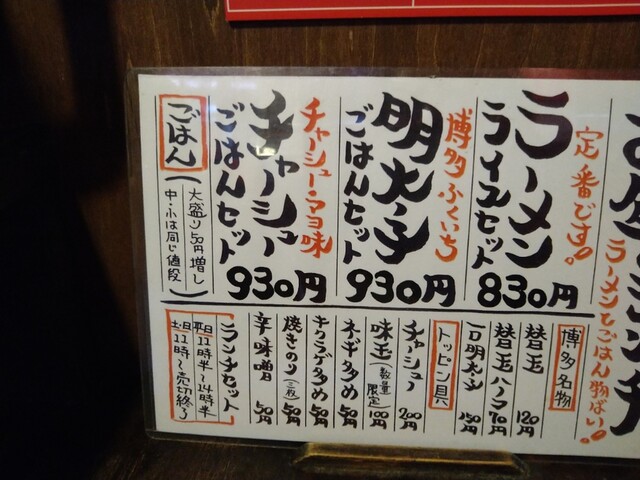 ラーメンもごはん物ばい!
定番です。
ラーメン
ライスセット
830円
博多ふくいち
明太子
ごはんセット
930円
チャーシュー・マヨ味
チャーシュー
ごはんセット
930円
ごはん
大盛り50円増し
中・小は同じ値段
博多名物
替玉 120円
替玉ハーフ 70円
一口明太子 150円
トッピン具
チャーシュー 200円
味玉(数量限定) 100円
ネギ多め 50円
キクラゲ多め 50円
焼きのり(三枚) 50円
辛味噌 50円
ランチセット
平日 11時半〜14時半
土日 11時〜売切終了